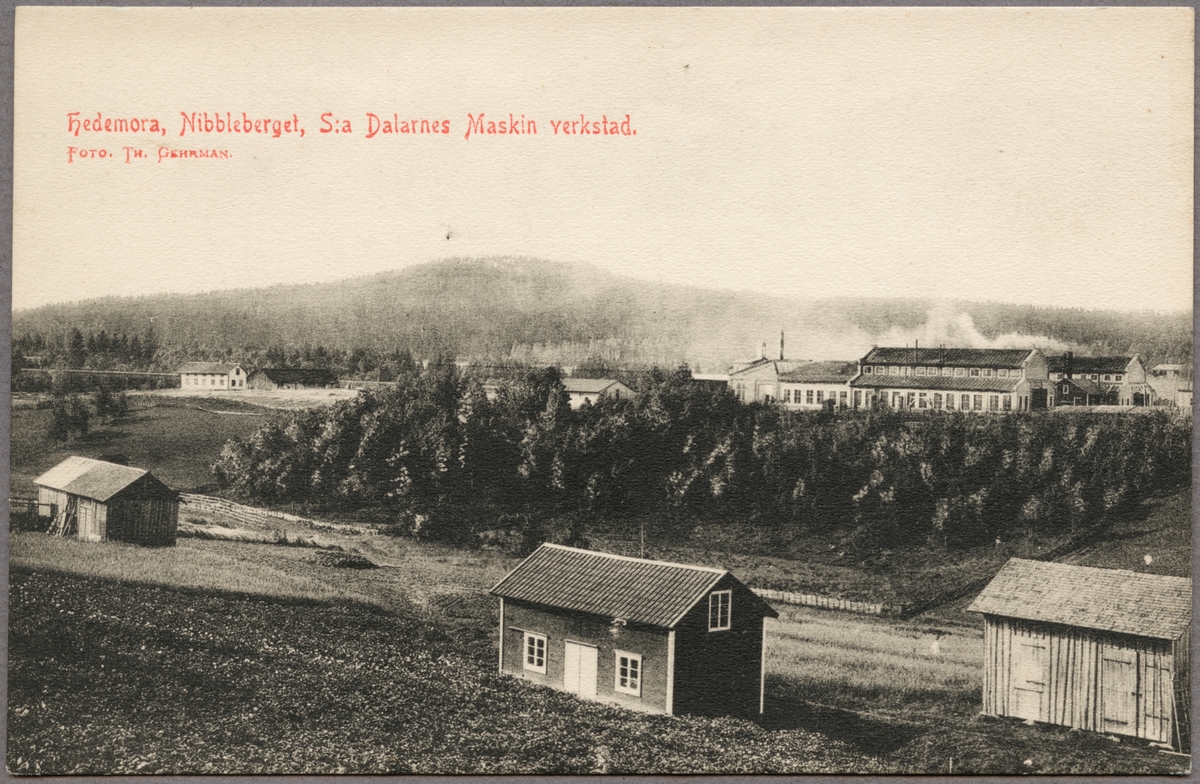 Hedemora, Nibbleberget, S:a Dalarnes Maskin verkstad.
FOTO. TH. GEHRMAN.